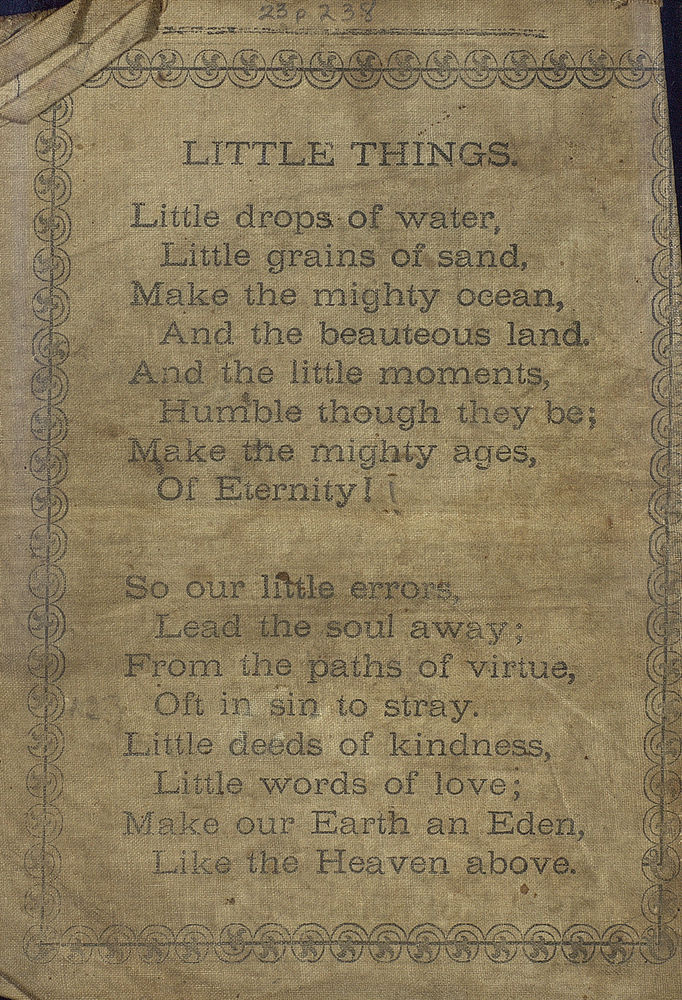 23p238
LITTLE THINGS.
Little drops of water,
Little grains of sand,
Make the mighty ocean,
And the beauteous land.
And the little moments,
Humble though they be;
Make the mighty ages,
Of Eternity!
So our little errors,
Lead the soul away;
From the paths of virtue,
Oft in sin to stray.
Little deeds of kindness,
Little words of love;
Make our Earth an Eden,
Like the Heaven above.